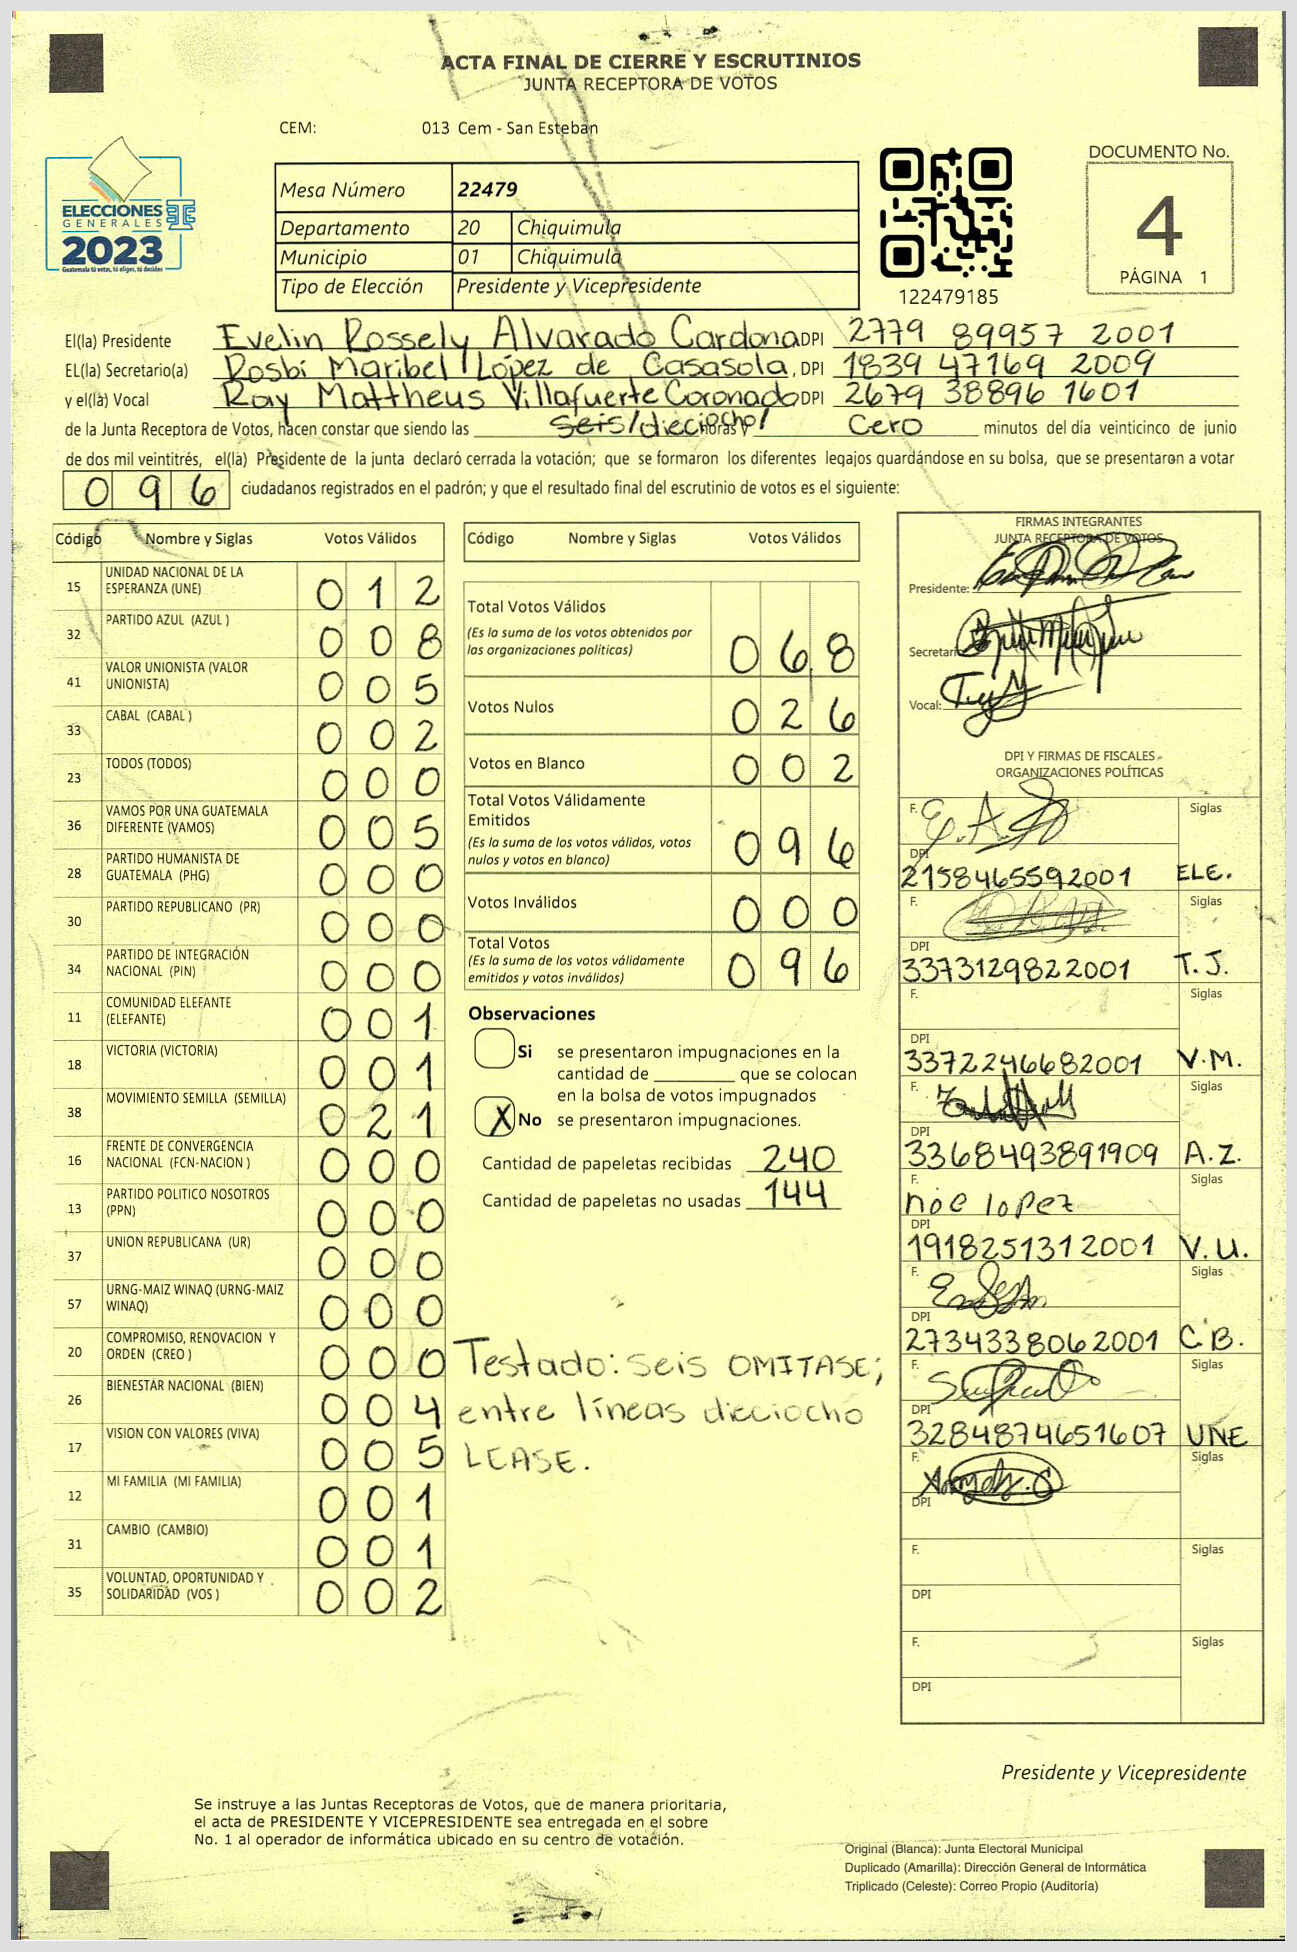 ACTA FINAL DE CIERRE Y ESCRUTINIOS
JUNTA RECEPTORA DE VOTOS
CEM: 013 Cem - San Esteban
ELECCIONES
GENERALES
2023
Guatemala tú votas, tú eliges, tú decides
Mesa Número 22479
Departamento 20 Chiquimula
Municipio 01 Chiquimula
Tipo de Elección Presidente y Vicepresidente
122479185
DOCUMENTO No.
4
PÁGINA 1
El(la) Presidente Evelin Rossely Alvarado Cardona DPI 2779 89957 2001
EL(la) Secretario(a) Rosbi Maribel López de Casasola, DPI 1839 47169 2009
y el(la) Vocal Ray Mattheus Villafuerte Coronado DPI 2679 38896 1601
de la Junta Receptora de Votos, hacen constar que siendo las seis/dieciocho/ horas y Cero minutos del día veinticinco de junio
de dos mil veintitrés, el(la) Presidente de la junta declaró cerrada la votación; que se formaron los diferentes legajos guardándose en su bolsa, que se presentaron a votar
096 ciudadanos registrados en el padrón; y que el resultado final del escrutinio de votos es el siguiente:
Código Nombre y Siglas Votos Válidos
15 UNIDAD NACIONAL DE LA ESPERANZA (UNE) 012
32 PARTIDO AZUL (AZUL ) 008
41 VALOR UNIONISTA (VALOR UNIONISTA) 005
33 CABAL (CABAL ) 002
23 TODOS (TODOS) 000
36 VAMOS POR UNA GUATEMALA DIFERENTE (VAMOS) 005
28 PARTIDO HUMANISTA DE GUATEMALA (PHG) 000
30 PARTIDO REPUBLICANO (PR) 000
34 PARTIDO DE INTEGRACIÓN NACIONAL (PIN) 000
11 COMUNIDAD ELEFANTE (ELEFANTE) 001
18 VICTORIA (VICTORIA) 001
38 MOVIMIENTO SEMILLA (SEMILLA) 021
16 FRENTE DE CONVERGENCIA NACIONAL (FCN-NACION ) 000
13 PARTIDO POLITICO NOSOTROS (PPN) 000
37 UNION REPUBLICANA (UR) 000
57 URNG-MAIZ WINAQ (URNG-MAIZ WINAQ) 000
20 COMPROMISO, RENOVACION Y ORDEN (CREO ) 000
26 BIENESTAR NACIONAL (BIEN) 004
17 VISION CON VALORES (VIVA) 005
12 MI FAMILIA (MI FAMILIA) 001
31 CAMBIO (CAMBIO) 001
35 VOLUNTAD, OPORTUNIDAD Y SOLIDARIDAD (VOS ) 002
Código Nombre y Siglas Votos Válidos
Total Votos Válidos
(Es la suma de los votos obtenidos por
las organizaciones políticas) 068
Votos Nulos 026
Votos en Blanco 002
Total Votos Válidamente
Emitidos
(Es la suma de los votos válidos, votos
nulos y votos en blanco) 096
Votos Inválidos 000
Total Votos
(Es la suma de los votos válidamente
emitidos y votos inválidos) 096
Observaciones
Si se presentaron impugnaciones en la
cantidad de ________ que se colocan
en la bolsa de votos impugnados
X No se presentaron impugnaciones.
Cantidad de papeletas recibidas 240
Cantidad de papeletas no usadas 144
Testado: seis OMITASE;
entre líneas dieciocho
LEASE.
FIRMAS INTEGRANTES
JUNTA RECEPTORA DE VOTOS
Presidente:
Secretari
Vocal:
DPI Y FIRMAS DE FISCALES
ORGANIZACIONES POLÍTICAS
F. E.A. Siglas
DPI
2158465592001 ELE.
F. Siglas
DPI
3373129822001 T.J.
F. Siglas
DPI
3372246682001 V.M.
F. Siglas
DPI
3368493891909 A.Z.
F. Siglas
noe lopez
DPI
1918251312001 V.U.
F. Siglas
DPI
2734338062001 C.B.
F. Siglas
DPI
3284874651607 UNE
F. Siglas
DPI
F. Siglas
DPI
F. Siglas
DPI
Presidente y Vicepresidente
Se instruye a las Juntas Receptoras de Votos, que de manera prioritaria,
el acta de PRESIDENTE Y VICEPRESIDENTE sea entregada en el sobre
No. 1 al operador de informática ubicado en su centro de votación.
Original (Blanca): Junta Electoral Municipal
Duplicado (Amarilla): Dirección General de Informática
Triplicado (Celeste): Correo Propio (Auditoría)